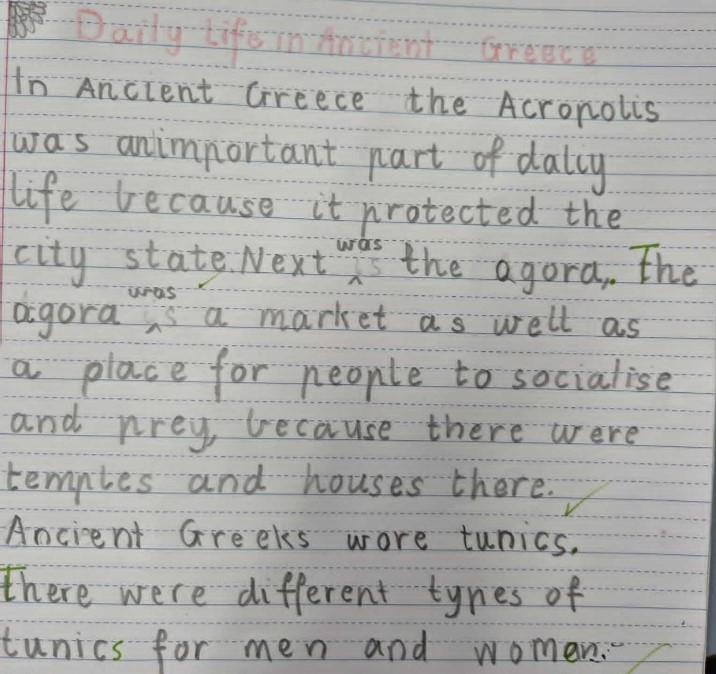 Daily Life in Ancient Greece
In Ancient Greece the Acropolis
was an important part of daliy
life because it protected the
city state. Next was the agora,. The
agora was a market as well as
a place for people to socialise
and prey, because there were
temples and houses there.
Ancient Greeks wore tunics.
There were different types of
tunics for men and women.